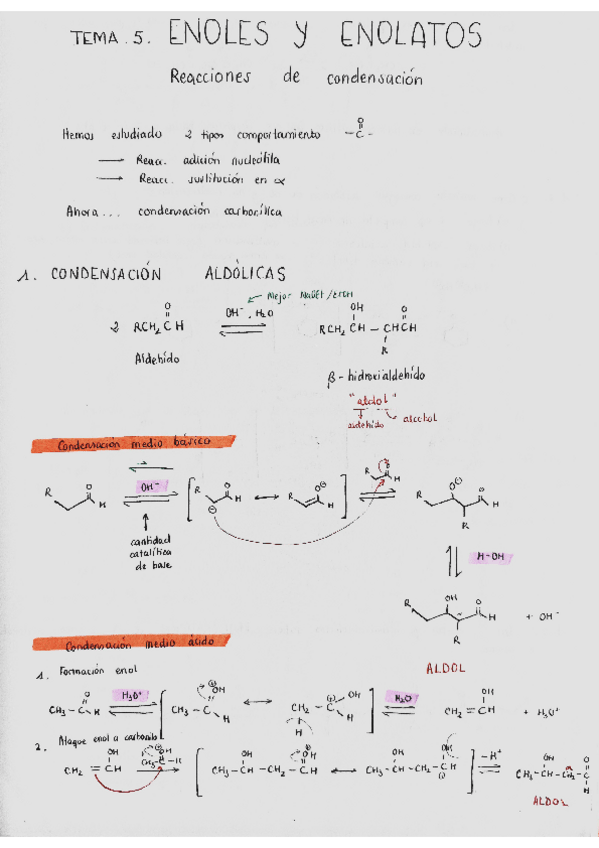 TEMA.5. ENOLES Y ENOLATOS
Reacciones de condensación
Hemos estudiado 2 tipos comportamiento -C- O
→ Reacc. adición nucleófila
→ Reacc. sustitución en α
Ahora... condensación carbonílica
1. CONDENSACIÓN ALDÓLICAS
Mejor NaOEt/EtOH
2 RCH₂CH O
OH⁻, H₂O
RCH₂CH-CHCH OH O R
Aldehído
β-hidroxialdehído
"aldol"
aldehído
alcohol
Condensación medio básico
R O H
OH⁻
R O H
R O⁻ H
R O H
R O⁻ O H R
cantidad
catalítica
de base
H-OH
R OH O H R
+ OH⁻
ALDOL
Condensación medio ácido
1. Formación enol
CH₃-C-H O
H₃O⁺
CH₃-C OH H
CH₂-C OH H H
H₂O
CH₂=CH OH
+ H₃O⁺
2. Ataque enol a carbonilo
CH₂=CH OH
CH₃-C-H OH
CH₃-CH-CH₂-CH OH OH
CH₃-CH-CH₂-CH OH OH
-H⁺
CH₃-CH-CH₂-C OH O H
ALDOL